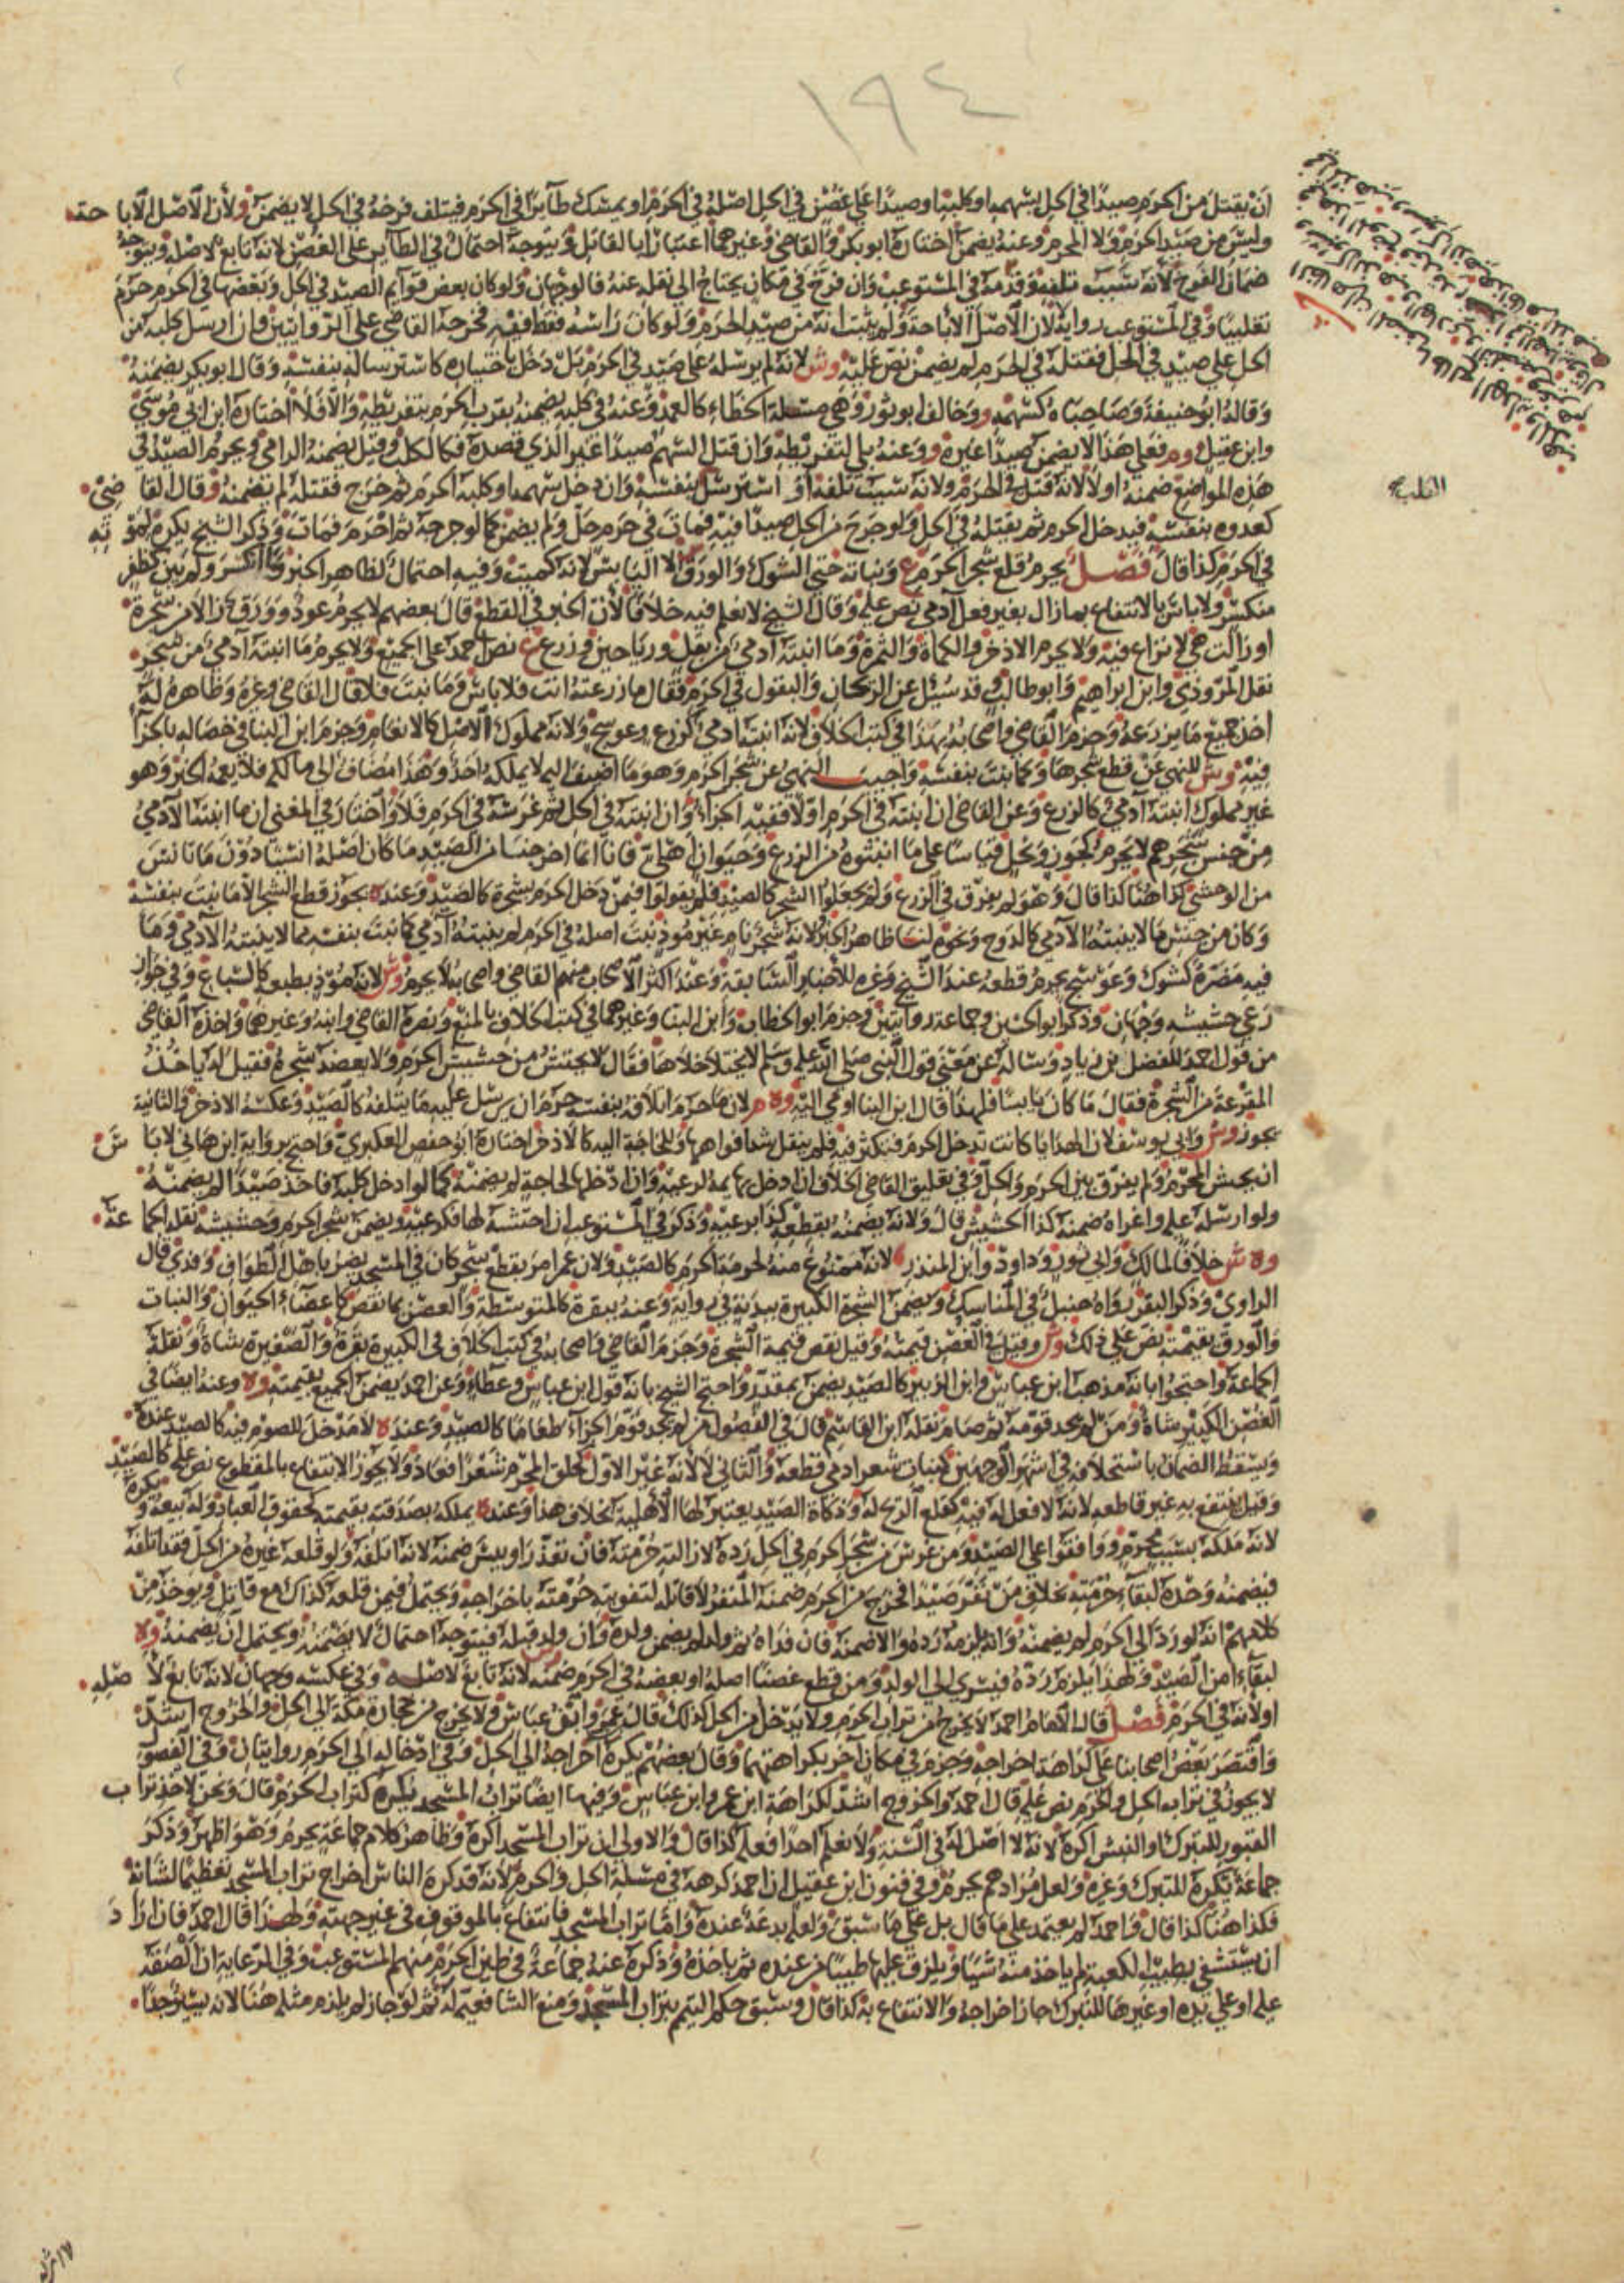 ١٩٤
ان يقتل من الحرم صيدا في الحل بسهمه او كلبه او صيدا على غصن في الحل اصله في الحرم او يمسك طائرا في الحرم فيتلف فرخه في الحل لا يضمن ولان الاصل الاباحة
وليس من صيد الحرم ولا المحرم وعنه يضمن اختاره ابو بكر والقاضي وغيرهما اعتبارا بالقاتل ويتوجه احتمال في الطائر على الغصن لانه تابع لاصله ويتوجه
ضمان الفرخ لانه سبب تلفه وقدمه في المستوعب وان فرخ في مكان يحتاج الى نقله عنه فالوجهان ولو كان بعض قوائم الصيد في الحل وبعضها في الحرم حرم
تغليبا وفي المستوعب رواية لا لان الاصل الاباحة ولم يثبت انه من صيد الحرم ولو كان راسه فقط فيه فخرجه القاضي على الروايتين وان ارسل كلبه من
الحل على صيد في الحل فقتله في الحرم لم يضمن نص عليه وش لانه لم يرسله على صيد في الحرم بل دخل باختياره كاسترساله بنفسه وقال ابو بكر يضمنه
وقاله ابو حنيفة وصاحباه كسهمه وخالف ابو ثور وهي مسئلة الخطاء كالعمد وعنه في كلبه يضمنه بقرب الحرم بتفريطه والا فلا اختاره ابن ابي موسى
وابن عقيل وم فعلى هذا لا يضمن صيدا غيره و وعنه بلى لتفريطه وان قتل السهم صيدا غير الذي قصده فكالكلب وقيل يضمنه الرامي ويحرم الصيد في
هذه المواضع ضمنه اولا لانه قتل في الحرم ولانه سبب تلفه او استرسل بنفسه وان دخل سهمه او كلبه الحرم ثم خرج فقتله لم يضمنه وقال القاضي
كعدوه بنفسه فيدخل الحرم ثم يقتله في الحل ولو جرح من الحل صيدا فيه فمات في حرم حل ولم يضمن كما لو جرحه ثم احرم فمات وذكر الشيخ يكره لموته
في الحرم كذا قال فصل يحرم قلع شجر الحرم ع ونباته حتى الشوك والورق الا اليابس لانه كميت وفيه احتمال لظاهر الخبر وما انكسر ولم يبن كظفر
منكسر ولا باس بالانتفاع بما زال بغير فعل آدمي نص عليه وقال الشيخ لا نعلم فيه خلافا لان الخبر في القطع قال بعضهم لا يحرم عود وورق زالا من شجرة
او زالت هي لا نزاع فيه ولا يحرم الاذخر والكماة والثمرة وما انبته آدمي من بقل ورياحين وزرع ع نص احمد على الجميع ولا يحرم ما انبته آدمي من شجر
نقل المروذي وابن ابراهيم وابو طالب وقد سئل عن الريحان والبقول في الحرم فقال ما زرعته انت فلا باس وما نبت فلا قال القاضي وغيره وظاهره له
اخذ جميع ما يزرعه وجزم القاضي واصحابه بهذا في كتب الخلاف لانه انبته ادمي كزرع وعوسج ولانه مملوك الاصل كالانعام وجزم ابن البنا في خصاله بالجزاء
فيه وش للنهي عن قطع شجرها وكما نبت بنفسه واجيب النهي عن شجر الحرم وهو ما اضيف اليه لا يملكه احد وهذا مضاف الى مالكه فلا يعمه الخبر وهو
غير مملوك انبته آدمي كالزرع وعن القاضي ان انبته في الحرم اولا ففيه الجزاء وان انبته في الحل ثم غرسه في الحرم فلا واختار في المغني ان ما انبته الآدمي
من جنس شجرهم لا يحرم كجوز ونخل قياسا على ما انبتوه من الزرع وحيوان اهلي فانا انما اخرجنا من الصيد ما كان اصله انسيا دون ما تانس
من الوحشي كذا هنا كذا قال وهو لم يفرق في الزرع ولم يجعلوا الشجر كالصيد فلم يقولوا فيمن دخل الحرم بشجرة كالصيد وعنده يجوز قطع الشجر الا ما نبت بنفسه
وكان من جنس ما لا ينبته الآدمي كالدوح ونحوه لنا ظاهر الخبر لانه شجر نام غير موذ نبت اصله في الحرم لم ينبته آدمي كما نبت بنفسه مما لا ينبته الآدمي وما
فيه مضرة كشوك وعوسج يحرم قطعه عند الشيخ وغيره للاخبار السابقة وعند اكثر الاصحاب منهم القاضي واصحابه لا يحرم وش لانه موذ بطبعه كالسباع وفي جواز
رعي حشيشه وجهان وذكر ابو الحسين وجماعة روايتين وجزم ابو الخطاب وابن البنا وغيرهما في كتب الخلاف بالمنع ونصره القاضي وابنه وغيرهما واخذه القاضي
من قول احمد للفضل بن زياد وساله عن معنى قول النبي صلى الله عليه وسلم لا يختلا خلاها فقال لا يحتش من حشيش الحرم ولا يعضد شجره فقيل له ياخذ
المقرعة من الشجرة فقال ما كان يابسا فلهذا قال ابن البنا اومى اليه وه م لان ما حرم اتلافه بنفسه حرم ان يرسل عليه ما يتلفه كالصيد وعكسه الاذخر والثانية
يجوز وش وابي يوسف لان الهدايا كانت تدخل الحرم فتكثر فيه فلم ينقل شد افواهها وللحاجة اليه كالاذخر اختاره ابو حفص العكبري واحتج برواية ابن هاني لا باس
ان يحتش المحرم ولم يفرق بين الحرم والحل وفي تعليق القاضي الخلاف ان ادخل بهيمة لرعيه وان ادخلها لحاجة لم يضمنه كما لو ادخل كلبه فاخذ صيدا لم يضمنه
ولو ارسله عليه واغراه ضمنه كذا الحشيش قال ولانه يضمنه بقطعه كذا برعيه وذكر في المستوعب ان احتشه لها فكرعيه ويضمن شجر الحرم وحشيشه نقله الجماعة
وه ش خلافا لمالك وابي ثور وداود وابن المنذر لانه ممنوع منه لحرمة الحرم كالصيد ولان عمر امر بقطع شجر كان في المسجد يضر باهل الطواف وفدى قال
الراوي وذكر البقر رواه حنبل في المناسك ويضمن الشجرة الكبيرة ببدنة في رواية وعنه ببقرة كالمتوسطة والغصن بما نقص كاعضاء الحيوان والنبات
والورق بقيمته نص على ذلك وش وقيل في الغصن قيمته وقيل نقص قيمة الشجرة وجزم القاضي واصحابه في كتب الخلاف في الكبيرة بقرة والصغيرة بشاة ونقله
الجماعة واحتجوا بانه مذهب ابن عباس وابن الزبير كالصيد يضمن بمقدر واحتج الشيخ بانه قول ابن عباس وعطاء وعن احمد يضمن الجميع بقيمته وه وعنه ايضا في
الغصن الكبير شاة ومن لم يجد قومه ثم صام نقله ابن القاسم قال في الفصول من لم يجد قوم الجزاء طعاما كالصيد وعنده لا مدخل للصوم فيه كالصيد عنده
ويسقط الضمان باستخلافه في اشهر الوجهين كنبات شعر ادمي قطعه والثاني لا لانه غير الاول كحلق المحرم شعرا فعاد ولا يجوز الانتفاع بالمقطوع نص عليه كالصيد
وقيل ينتفع به غير قاطعه لانه لا فعل له فيه كقلع الريح له وذكاة الصيد يعتبر لها الاهلية بخلاف هذا وعنده يملكه بصدقته بقيمته كحقوق العباد وله بيعه ويكره
لانه ملكه بسبب محرم ووافقوا على الصيد ومن غرس من شجر الحرم في الحل رده لازالته حرمته فان تعذر او يبس ضمنه لانه اتلفه ولو قلعه غيره من الحل فقد اتلفه
فيضمنه وحده لبقاء حرمته بخلاف من نفر صيدا فخرج من الحرم ضمنه المنفر لا قاتله لتفويته حرمته باخراجه ويحتمل فيمن قلعه كذاك مع قاتل ويوخذ من
كلامهم انه لو رده الى الحرم لم يضمنه وانه يلزمه رده والا ضمنه فان فداه ثم ولد لم يضمن ولده وان ولد قبله فيتوجه احتمال لا يضمنه ويحتمل ان يضمنه وه
لبقاء امن الصيد ولهذا يلزم رده فيسري الى الولد ومن قطع غصنا اصله او بعضه في الحرم ضمنه لانه تابع لاصله وفي عكسه وجهان لانه تابع لاصله
او لانه في الحرم فصل قال الامام احمد لا يخرج من تراب الحرم ولا يدخل من الحل كذلك قال عمر وابن عباس ولا يخرج من حجارة مكة الى الحل والخروج اشد
واقتصر بعض اصحابنا على كراهة اخراجه وجزم في مكان آخر بكراهتهما وقال بعضهم يكره اخراجه الى الحل وفي ادخاله الى الحرم روايتان وفي الفصول
لا يجوز في تراب الحل والحرم نص عليه قال احمد والخروج اشد لكراهة ابن عمر وابن عباس وفيها ايضا تراب المسجد يكره كتراب الحرم قال ونحن لاخذ تراب
القبور للتبرك او النبش اكره لانه لا اصل له في السنة ولا نعلم احدا فعله كذا قال والاولى ان تراب المسجد اكره وظاهر كلام جماعة يحرم وهو اظهر وذكر
جماعة يكره للتبرك وغيره ولعل مرادهم يحرم وفي فنون ابن عقيل ان احمد كرهه في مسئلة الحل والحرم لانه قد كره الناس اخراج تراب المسجد تعظيما لشانه
فكذا هنا كذا قال واحمد لم يعتمد على ما قال بل على ما سبق ولعله بدعة عنده واما تراب المسجد فانتفاع بالموقوف في غير جهته ولهذا قال احمد فان اراد
ان يستشفي بطيب الكعبة لم ياخذ منه شيا ويلزق عليها طيبا من عنده ثم ياخذه وذكره عنه جماعة في طين الحرم منهم المستوعب وفي الرعاية ان الصقه
عليه او على يده او غيرها للتبرك جاز اخراجه والانتفاع به كذا قال وسبق حكم التيمم بتراب المسجد ومنع الشافعية له ثم لو جاز لم يلزم مثله هنا لانه يسير جدا